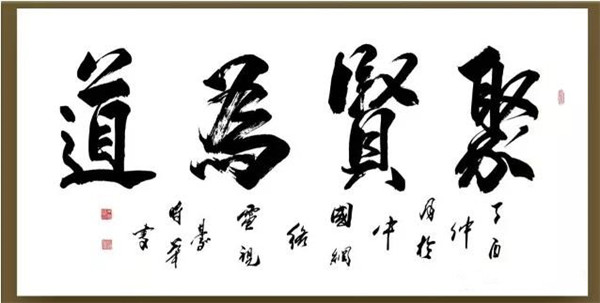 聚賢為道
丁酉
仲
於
中
國網
絡
電視
臺
時華
書